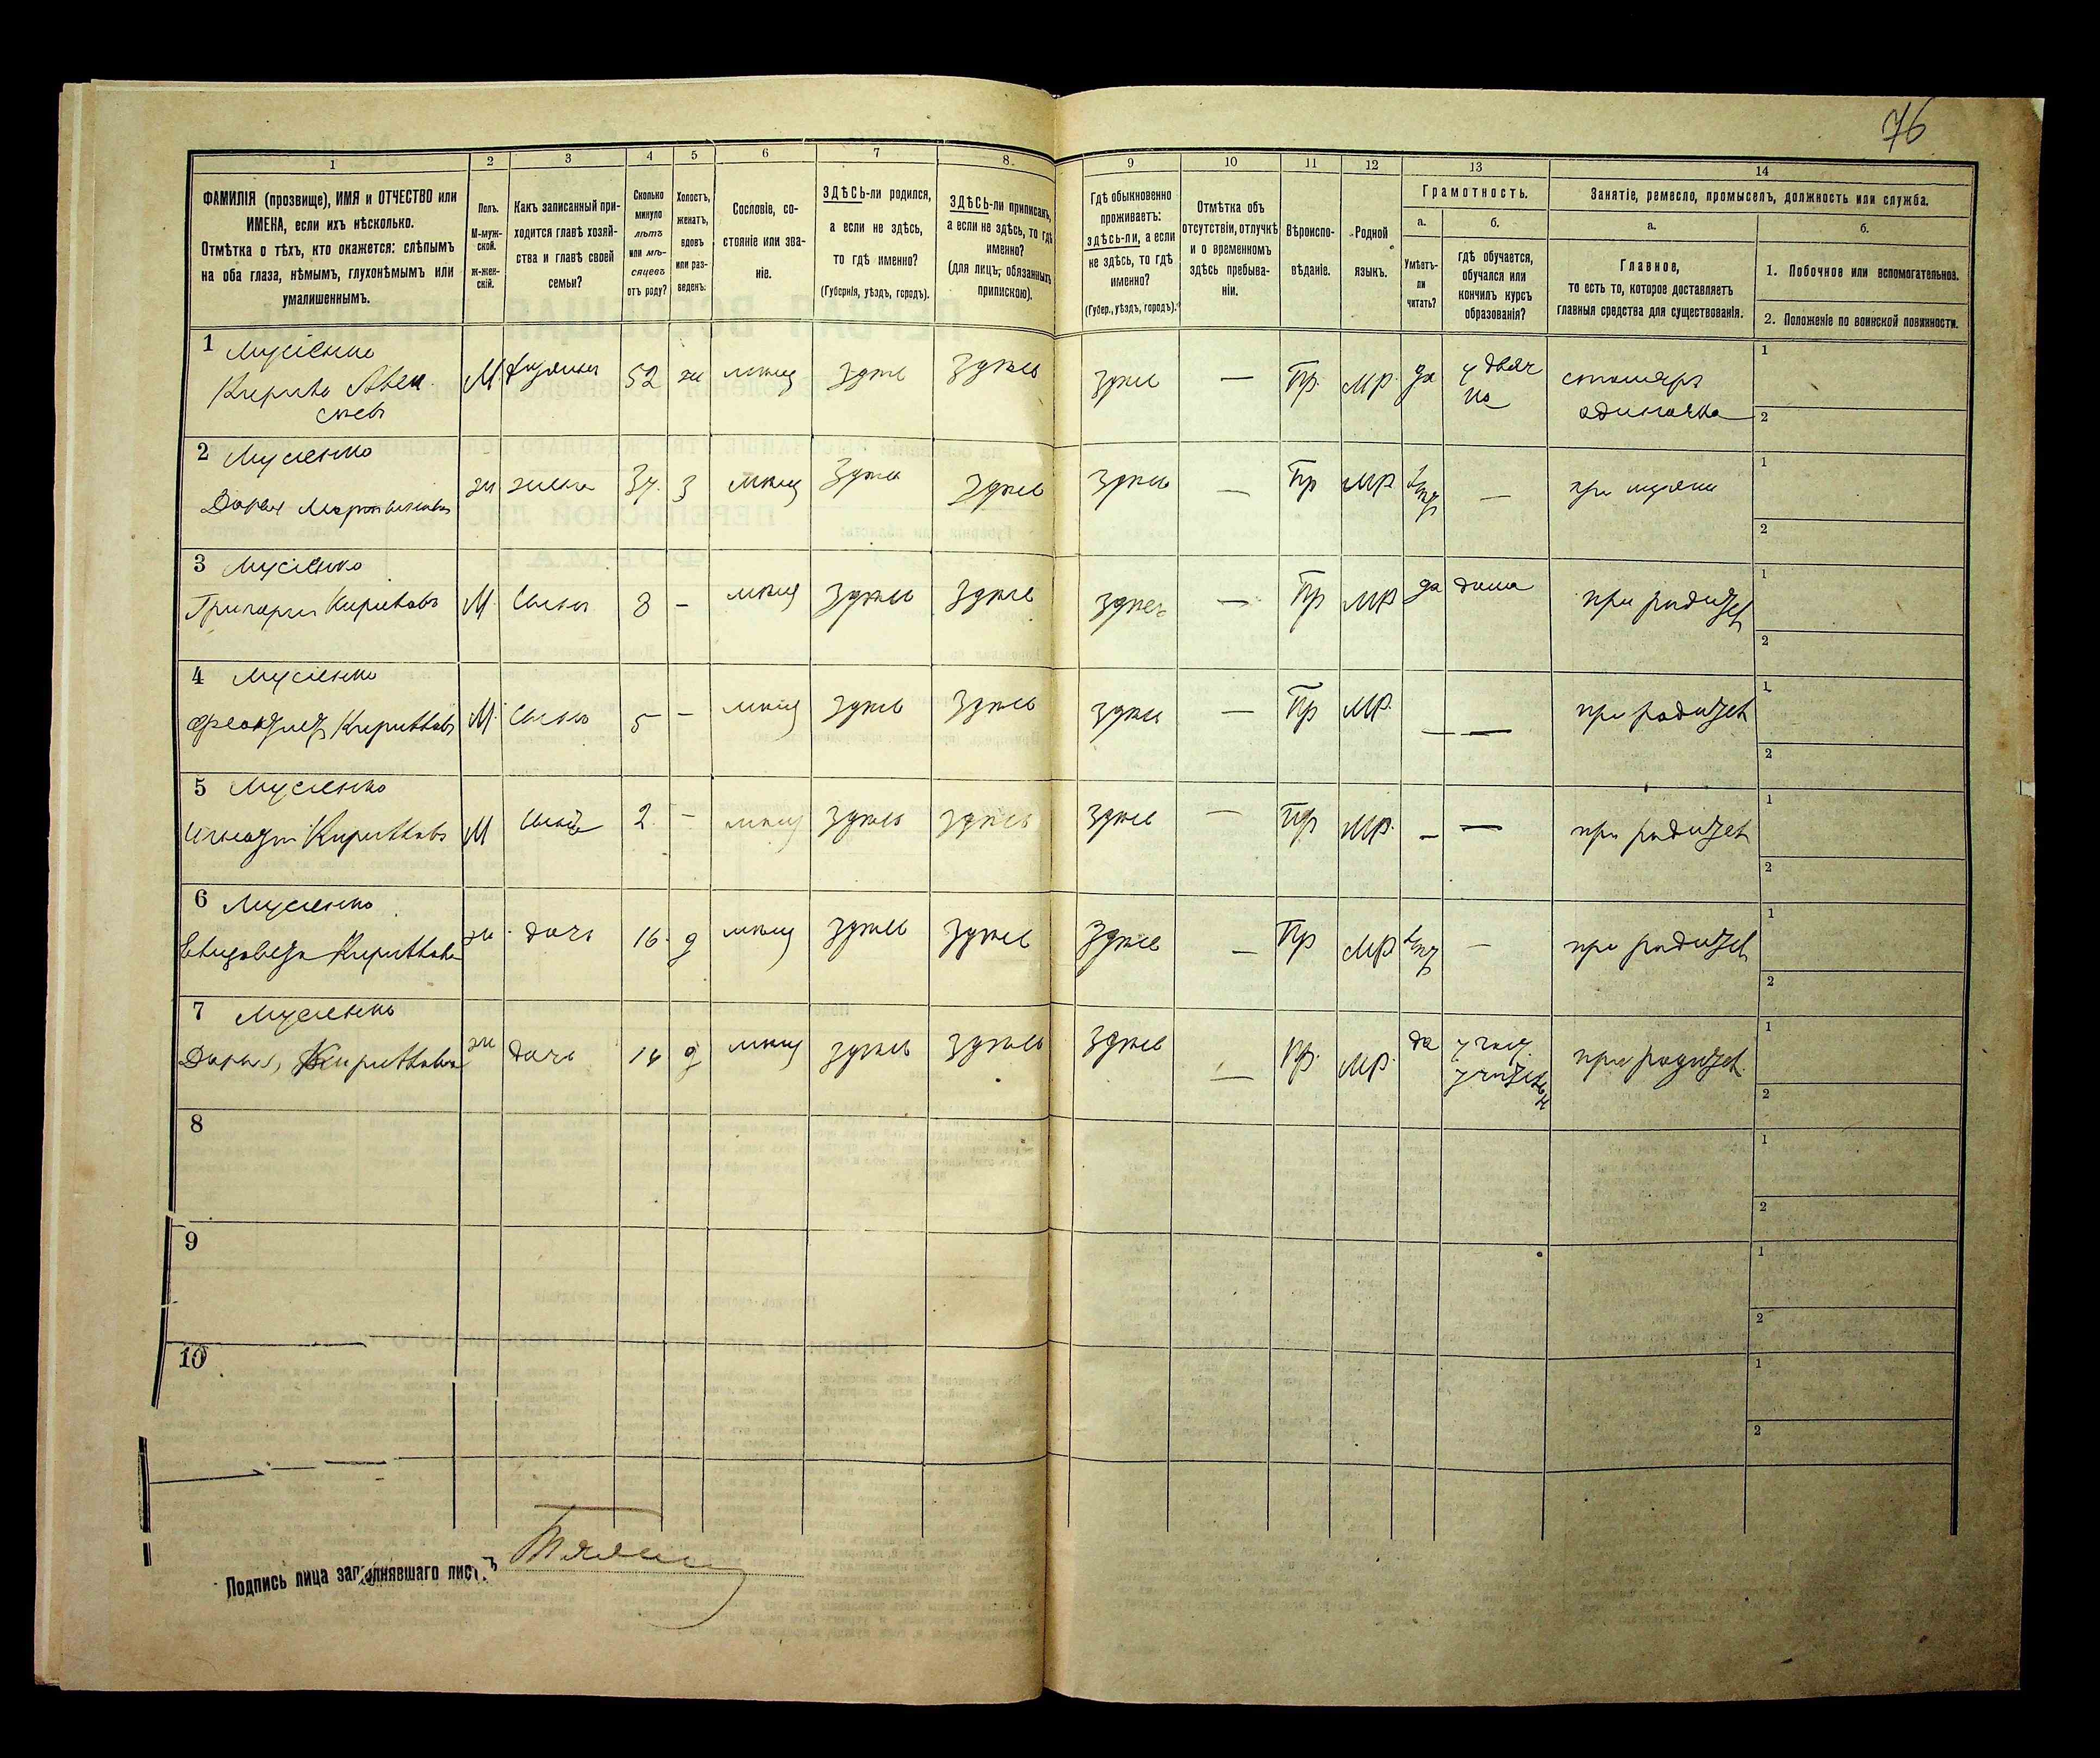 76
1 2 3 4 5 6 7 8 9 10 11 12 13 14
ФАМИЛІЯ (прозвище), ИМЯ и ОТЧЕСТВО или
ИМЕНА, если ихъ нѣсколько.
Отмѣтка о тѣхъ, кто окажется: слѣпымъ
на оба глаза, нѣмымъ, глухонѣмымъ или
умалишеннымъ.
Полъ.
М-муж-
ской.
ж-жен-
скій.
Какъ записанный при-
ходится главѣ хозяй-
ства и главѣ своей
семьи?
Сколько
минуло
лѣтъ
или мѣ-
сяцевъ
отъ роду?
Холостъ,
женатъ,
вдовъ
или раз-
веденъ.
Сословіе, со-
стояніе или зва-
ніе.
ЗДѢСЬ-ли родился,
а если не здѣсь,
то гдѣ именно?
(Губернія, уѣздъ, городъ).
ЗДѢСЬ-ли приписанъ,
а если не здѣсь, то гдѣ
именно?
(для лицъ, обязанныхъ
припискою).
Гдѣ обыкновенно
проживаетъ:
здѣсь-ли, а если
не здѣсь, то гдѣ
именно?
(Губер., уѣздъ, городъ).
Отмѣтка объ
отсутствіи, отлучкѣ
и о временномъ
здѣсь пребыва-
ніи.
Вѣроиспо-
вѣданіе.
Родной
языкъ.
Грамотность.
а.
Умѣетъ-
ли
читать?
б.
гдѣ обучается,
обучался или
кончилъ курсъ
образованія?
Занятіе, ремесло, промыселъ, должность или служба.
а.
Главное,
то есть то, которое доставляетъ
главныя средства для существованія.
б.
1. Побочное или вспомогательное.
2. Положеніе по воинской повинности.
1 Мусіенко
Кирилъ
М. 52 ж мѣщ здѣсь здѣсь здѣсь — Пр. МР. да у дьяч 1
ка столяръ
одиночка 2
2 Мусіенко
Дарья Мартынова ж жена 3 мѣщ здѣсь здѣсь здѣсь — Пр МР. — при мужѣ 1
2
3 Мусіенко
Григорій Кириловъ М. Сынъ 8 - мѣщ здѣсь здѣсь здѣсь — Пр МР да дома при родител 1
2
4 Мусіенко
Кириллов М. Сынъ 5 - мѣщ здѣсь здѣсь здѣсь — Пр МР. — — при родител 1
2
5 Мусіенко
Игнатій Кириллов М Сынъ 2 - мѣщ здѣсь здѣсь здѣсь — Пр МР. — — при родител 1
2
6 Мусіенко
Елизавета Кириллова ж дочь 16 д мѣщ здѣсь здѣсь здѣсь — Пр МР — при родител 1
2
7 Мусіенко
Дарья, Кириллова ж дочь 14 д мѣщ здѣсь здѣсь здѣсь — Пр. МР. да при родител. 1
2
8 1
2
9 1
2
10 1
2
Подпись лица заполнявшаго листъ